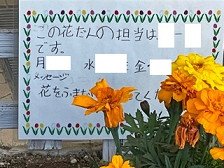 この花だんの担当は
です。
月 水 金
メッセージ
花をふまな てくだ